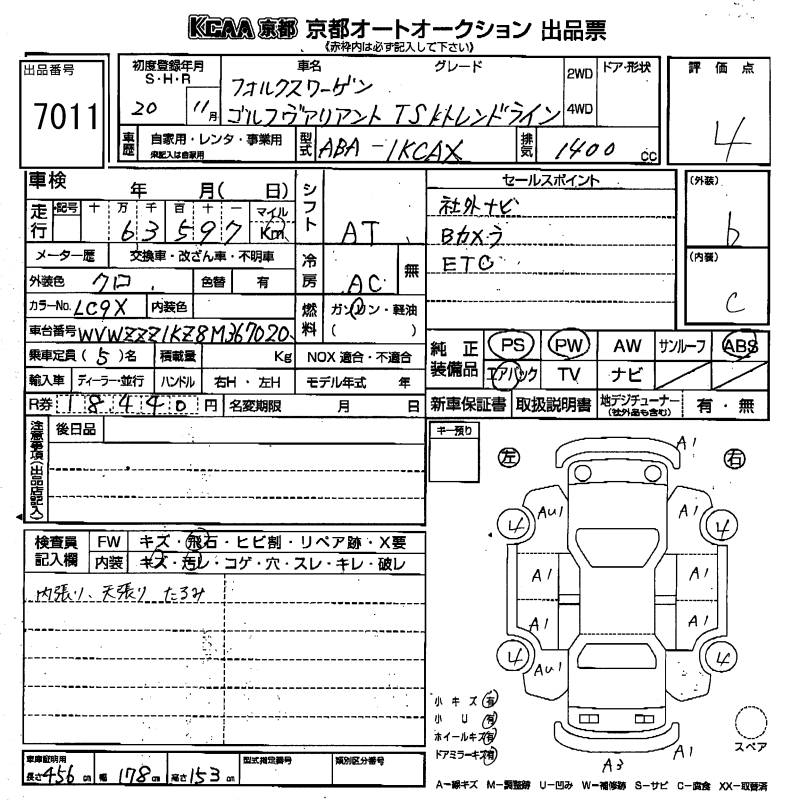 KCAA 京都 京都オートオークション 出品票
《赤枠内は必ず記入して下さい》
出品番号
7011
初度登録年月
S・H・R
20 11月
車名 グレード
フォルクスワーゲン
ゴルフヴァリアント TSIトレンドライン
2WD
4WD
ドア・形状
評価点
4
車歴
自家用・レンタ・事業用
未記入は自家用
型式
ABA-1KCAX
排気
1400 cc
車検 年 月( 日)
走行
記号 十 万 千 百 十 一 マイル
6 3 5 9 7 Km
シフト
AT
メーター歴 交換車・改ざん車・不明車
外装色 クロ 色替 有
冷房
AC 無
カラーNo. LC9X 内装色
燃料
ガソリン・軽油
( )
車台番号 WVWZZZ1KZ8M367020
乗車定員 (5) 名 積載量 Kg NOX 適合・不適合
輸入車 ディーラー・並行 ハンドル 右H・左H モデル年式 年
R券 18440 円 名変期限 月 日
セールスポイント
社外ナビ
Bカメラ
ETC
(外装)
b
(内装)
c
純正装備品
PS PW AW サンルーフ ABS
エアバック TV ナビ
新車保証書 取扱説明書 地デジチューナー(社外品も含む) 有・無
注意事項(出品店記入)
後日品
キー預り
左 右
検査員記入欄
FW キズ・飛石・ヒビ割・リペア跡・X要
内装 キズ・汚レ・コゲ・穴・スレ・キレ・破レ
内張り、天張り たるみ
A1
AU1 A1
4 4
A1 A1
A1 A1
4 4
AU1
A3 A1
小キズ 有
小U 有
ホイールキズ 有
ドアミラーキズ 有
スペア
A―線キズ M―調整跡 U―凹み W―補修跡 S―サビ C―腐食 XX―取替済
車庫証明用
長さ 456 cm 幅 178 cm 高さ 153 cm
型式指定番号
類別区分番号